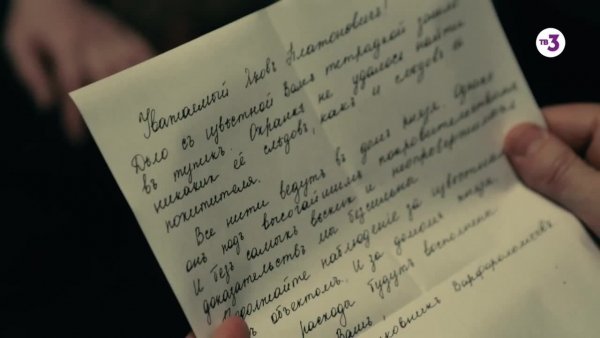 ТВ3
Уважаемый Яковъ Платоновичъ!
Дѣло съ извѣстной Вамъ тетрадкой зашло
въ тупикъ. Охранке не удалось найти
никакихъ её слѣдовъ, какъ и слѣдовъ её
похитителя.
Все нити ведутъ въ домъ князя. Однако
онъ подъ высочайшимъ покровительствомъ
И безъ самыхъ вѣскихъ и неопровержимыхъ
доказательствъ мы безсильны.
Продолжайте наблюденіе за извѣстным
объектомъ. И за домомъ князя.
расходы будутъ восполнены
Вашъ,
Полковникъ Варфоломеевъ